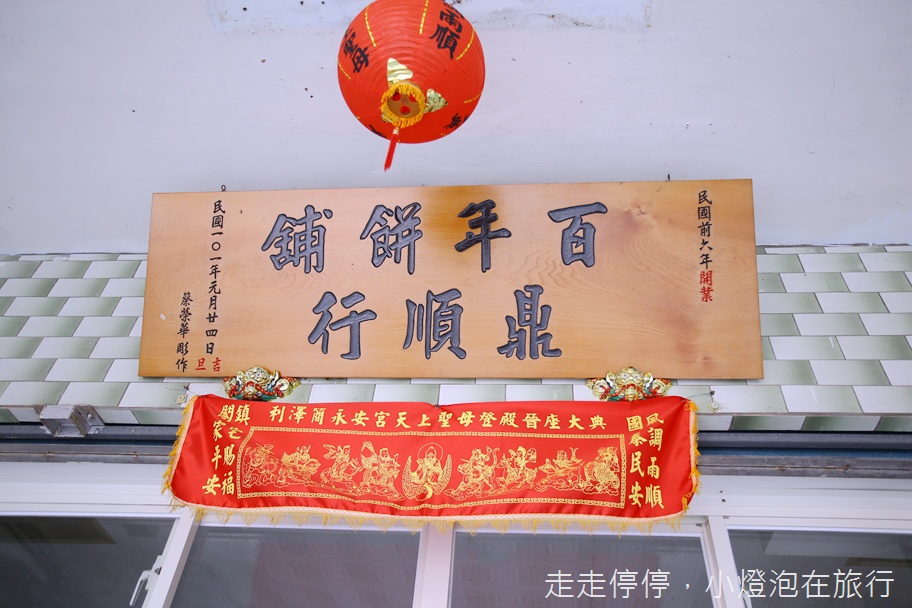 雨順
民國前六年開業
百年餅舖
鼎順行
民國一〇一年元月廿四日
吉旦
蔡榮華彫作
風調雨順
國泰民安
利澤簡永安宮天上聖母登殿晉座大典
鎮宅賜福
闔家平安
走走停停，小燈泡在旅行